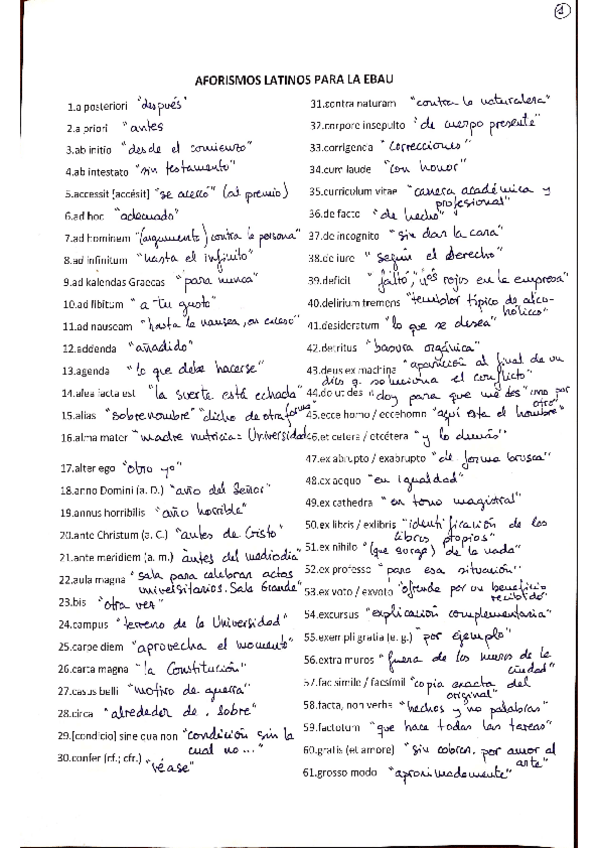 1
AFORISMOS LATINOS PARA LA EBAU
1.a posteriori "después"
2.a priori "antes
3.ab initio "desde el comienzo"
4.ab intestato "sin testamento"
5.accessit [accésit] "se acercó" (al premio)
6.ad hoc "adecuado"
7.ad hominem "(argumento) contra la persona"
8.ad infinitum "hasta el infinito"
9.ad kalendas Graecas "para nunca"
10.ad libitum "a tu gusto"
11.ad nauseam "hasta la nausea, en exceso"
12.addenda "añadido"
13.agenda "lo que debe hacerse"
14.alea iacta est "la suerte está echada"
15.alias "sobrenombre" "dicho de otra forma"
16.alma mater "madre nutricia = Universidad
17.alter ego "otro yo"
18.anno Domini (a. D.) "año del Señor"
19.annus horribilis "año horrible"
20.ante Christum (a. C.) "antes de Cristo"
21.ante meridiem (a. m.) antes del mediodia"
22.aula magna "sala para celebrar actos
universitarios. Sala Grande"
23.bis "otra vez"
24.campus "terreno de la Universidad"
25.carpe diem "aprovecha el momento"
26.carta magna "la Constitución"
27.casus belli "motivo de guerra"
28.circa "alrededor de, sobre"
29.[condicio] sine qua non "condición sin la
cual no..."
30.confer (cf.; cfr.) "véase"
31.contra naturam "contra la naturaleza"
32.corpore insepulto "de cuerpo presente"
33.corrigenda "correcciones"
34.cum laude "con honor"
35.curriculum vitae "carrera académica y
profesional"
36.de facto "de hecho"
37.de incognito "sin dar la cara"
38.de iure "según el derecho"
39.deficit "falto", nºs rojos en la empresa"
40.delirium tremens "temblor típico de alco-
hólicos"
41.desideratum "lo que se desea"
42.detritus "basura orgánica"
43.deus ex machina "aparición al final de un
dios q. soluciona el conflicto"
44.do ut des "doy para que me des" "uno por
otro"
45.ecce homo / eccehomo "aquí esta el hombre"
46.et cetera / etcétera "y lo demás"
47.ex abrupto / exabrupto "de forma brusca"
48.ex aequo "en igualdad"
49.ex cathedra "en tono magistral"
50.ex libris / exlibris "identificación de los
libros propios"
51.ex nihilo "(que surge) de la nada"
52.ex professo "para esa situación"
53.ex voto / exvoto "ofrenda por un beneficio
recibido"
54.excursus "explicación complementaria"
55.exempli gratia (e. g.) "por ejemplo"
56.extra muros "fuera de los muros de la
ciudad"
57.fac simile / facsímil "copia exacta del
original"
58.facta, non verba "hechos y no palabras"
59.factotum "que hace todas las tareas"
60.gratis (et amore) "sin cobrar, por amor al
arte"
61.grosso modo "aproximadamente"